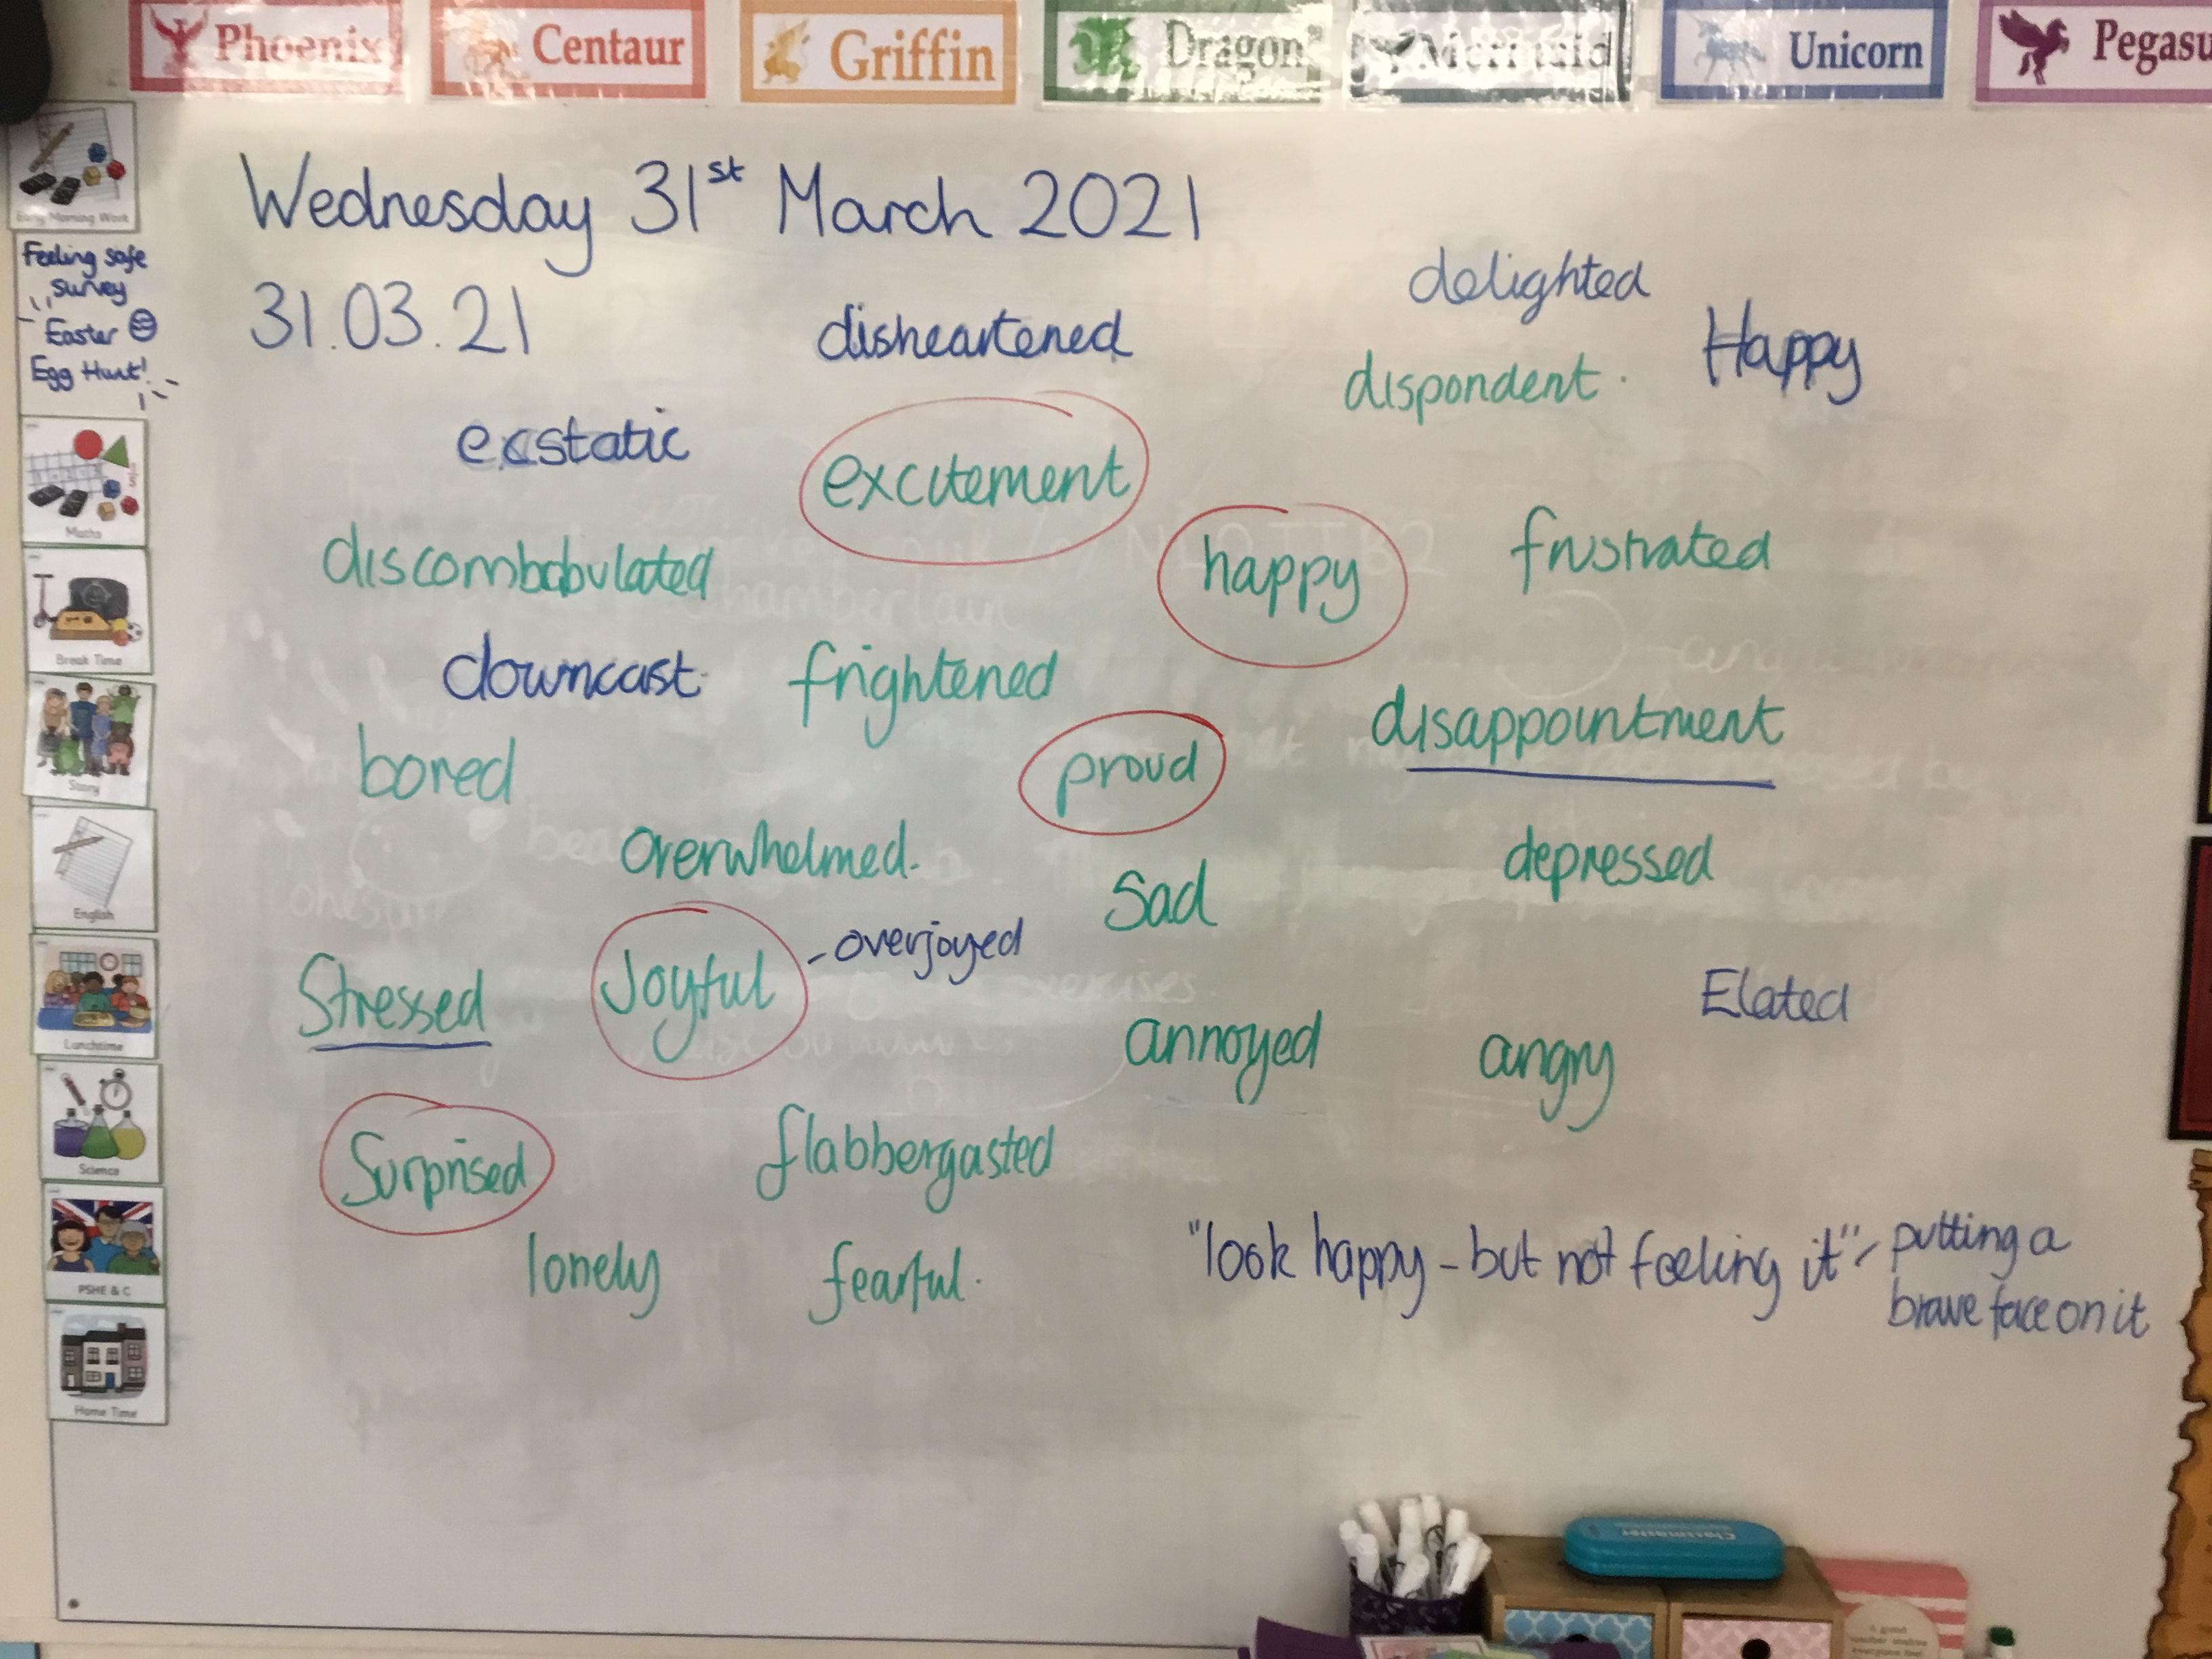 Phoenix
Centaur
Griffin
Dragon
Mermaid
Unicorn
Pegasu
Early Morning Work
Feeling safe
survey
Easter
Egg Hunt!
Maths
Break Time
Story
English
Lunchtime
Science
PSHE & C
Home Time
Wednesday 31st March 2021
31.03.21
disheartened
delighted
Happy
dispondent.
ecstatic
excitement
discombobulated
happy
frustrated
downcast.
frightened
disappointment
bored
proud
overwhelmed.
sad
depressed
Stressed
Joyful
- overjoyed
Elated
annoyed
angry
Surprised
flabbergasted
lonely
fearful.
"look happy - but not feeling it" - putting a
brave face on it
Classmaster
A good